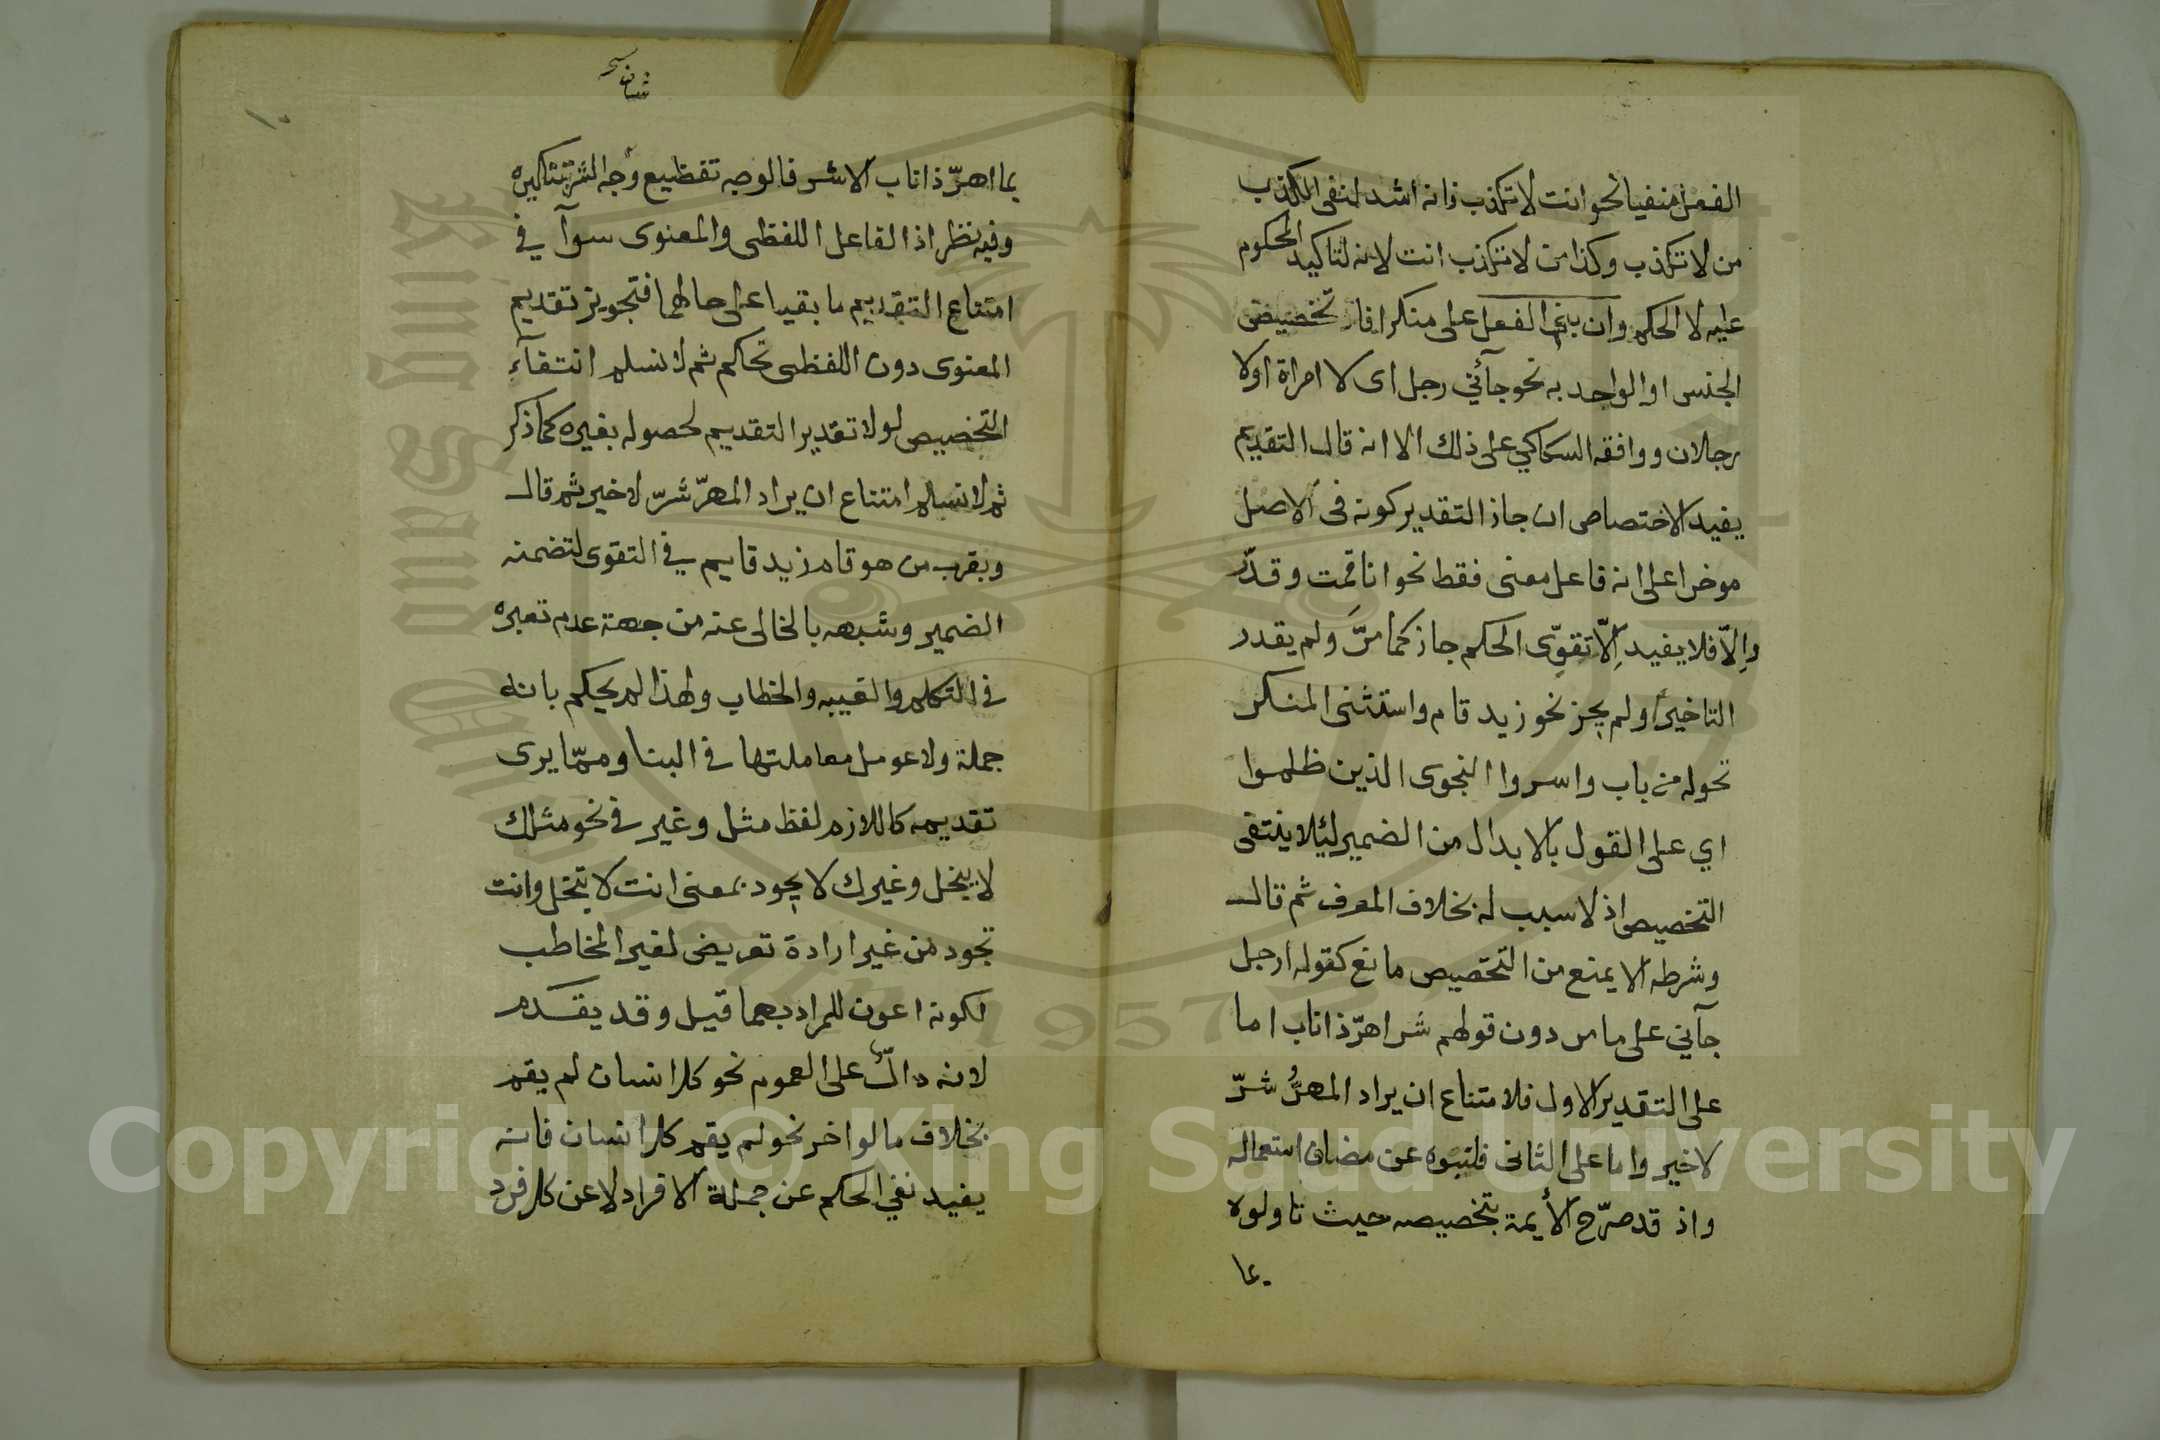 الفعل منفيا نحو انت لا تكذب فانه اشد لنفى الكذب
من لا تكذب وكذا من لا تكذب انت لانه لتاكيد المحكوم
عليه لا الحكم وان بنى الفعل على منكر افاد تخصيص
الجنس او الواحد به نحو جآئني رجل اى لا امراة او لا
رجلان ووافقه السكاكي على ذلك الا انه قال التقديم
يفيد الاختصاص ان جاز التقدير كونه فى الاصل
موخرا على انه فاعل معنى فقط نحو انا قمت وقدّر
وإلاّ فلا يفيد إلاّ تقوّى الحكم جاز كما مرَّ ولم يقدر
التاخير او لم يجز نحو زيد قام واستثنى المنكر
نحوله من باب واسروا النجوى الذين ظلموا
اي على القول بالابدال من الضمير لئلا ينتفى
التخصيص اذ لا سبب له بخلاف المعرف ثم قال
وشرطه الا يمنع من التخصيص مانع كقوله ارجل
جآني على ما مر دون قولهم شر اهرّ ذا ناب اما
على التقدير الاول فلامتناع ان يراد المهرُّ شرّ
لا خير واما على الثانى فلنبوه عن مضان استعماله
واذ قد صرّح الأيمة بتخصيصه حيث تاولوه
بما
شانه
١٠
بما اهرّ ذا ناب الا شر فالوجه تفظيع وجه الشر بتنكيره
وفيه نظر اذ الفاعل اللفظى والمعنوى سوآ في
امتناع التقديم ما بقيا على حالهما فتجويز تقديم
المعنوى دون اللفظى تحاكم ثم لا نسلم انتفآء
التخصيص لولا تقدير التقديم لحصوله بغيره كما ذكر
ثم لا نسلم امتناع ان يراد المهرّ شرّ لا خير ثم قال
وبقرب من هو قام زيد قايم في التقوى لتضمنه
الضمير وشبهه بالخالى عنه من جهة عدم تغيره
فى التكلم والغيبه والخطاب ولهذا لم يحكم بانه
جملة ولا عومل معاملتها فى البنا ومما يرى
تقديمه كاللازم لفظ مثل وغير فى نحو مثلك
لا يبخل وغيرك لا يجود بمعنى انت لا تبخل وانت
تجود من غير ارادة تعريض لغير المخاطب
لكونه اعون للمراد بهما قيل وقد يقدم
لانه دالّ على العموم نحو كل انسان لم يقم
بخلاف ما لو اخر نحو لم يقم كل انسان فانه
يفيد نفي الحكم عن جملة الافراد لا عن كل فرد
1957
Copyright © King Saud University